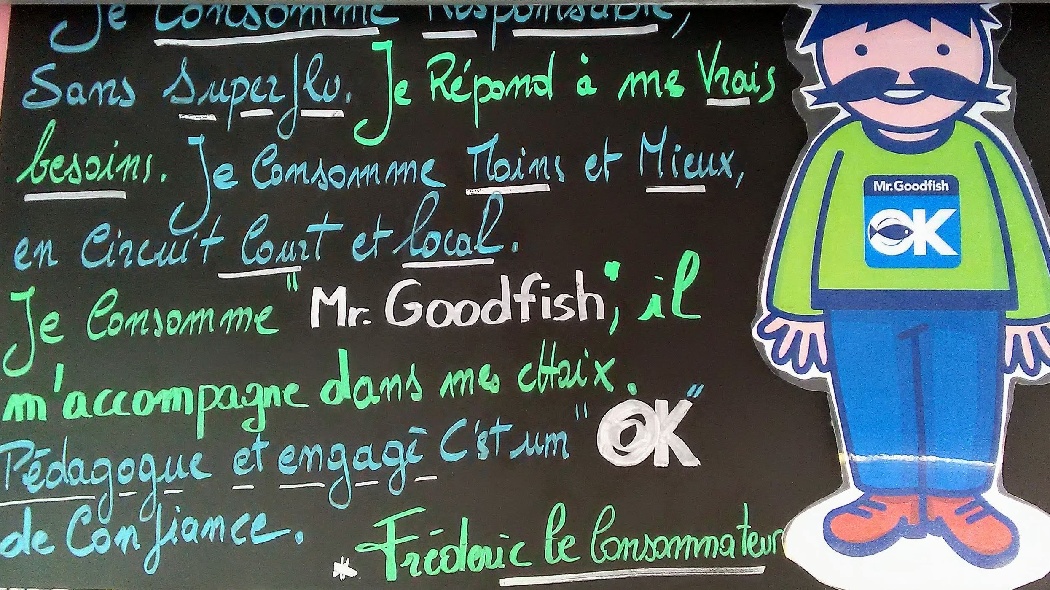 Je Consomme Responsable,
Sans Superflu. Je Répond à mes Vrais
besoins. Je Consomme Moins et Mieux,
en Circuit Court et local.
Je Consomme "Mr. Goodfish"; il
m'accompagne dans mes choix.
Pédagogue et engagé C'est um "OK"
de Confiance.
* Fréderic le Consommateur
Mr.Goodfish
OK